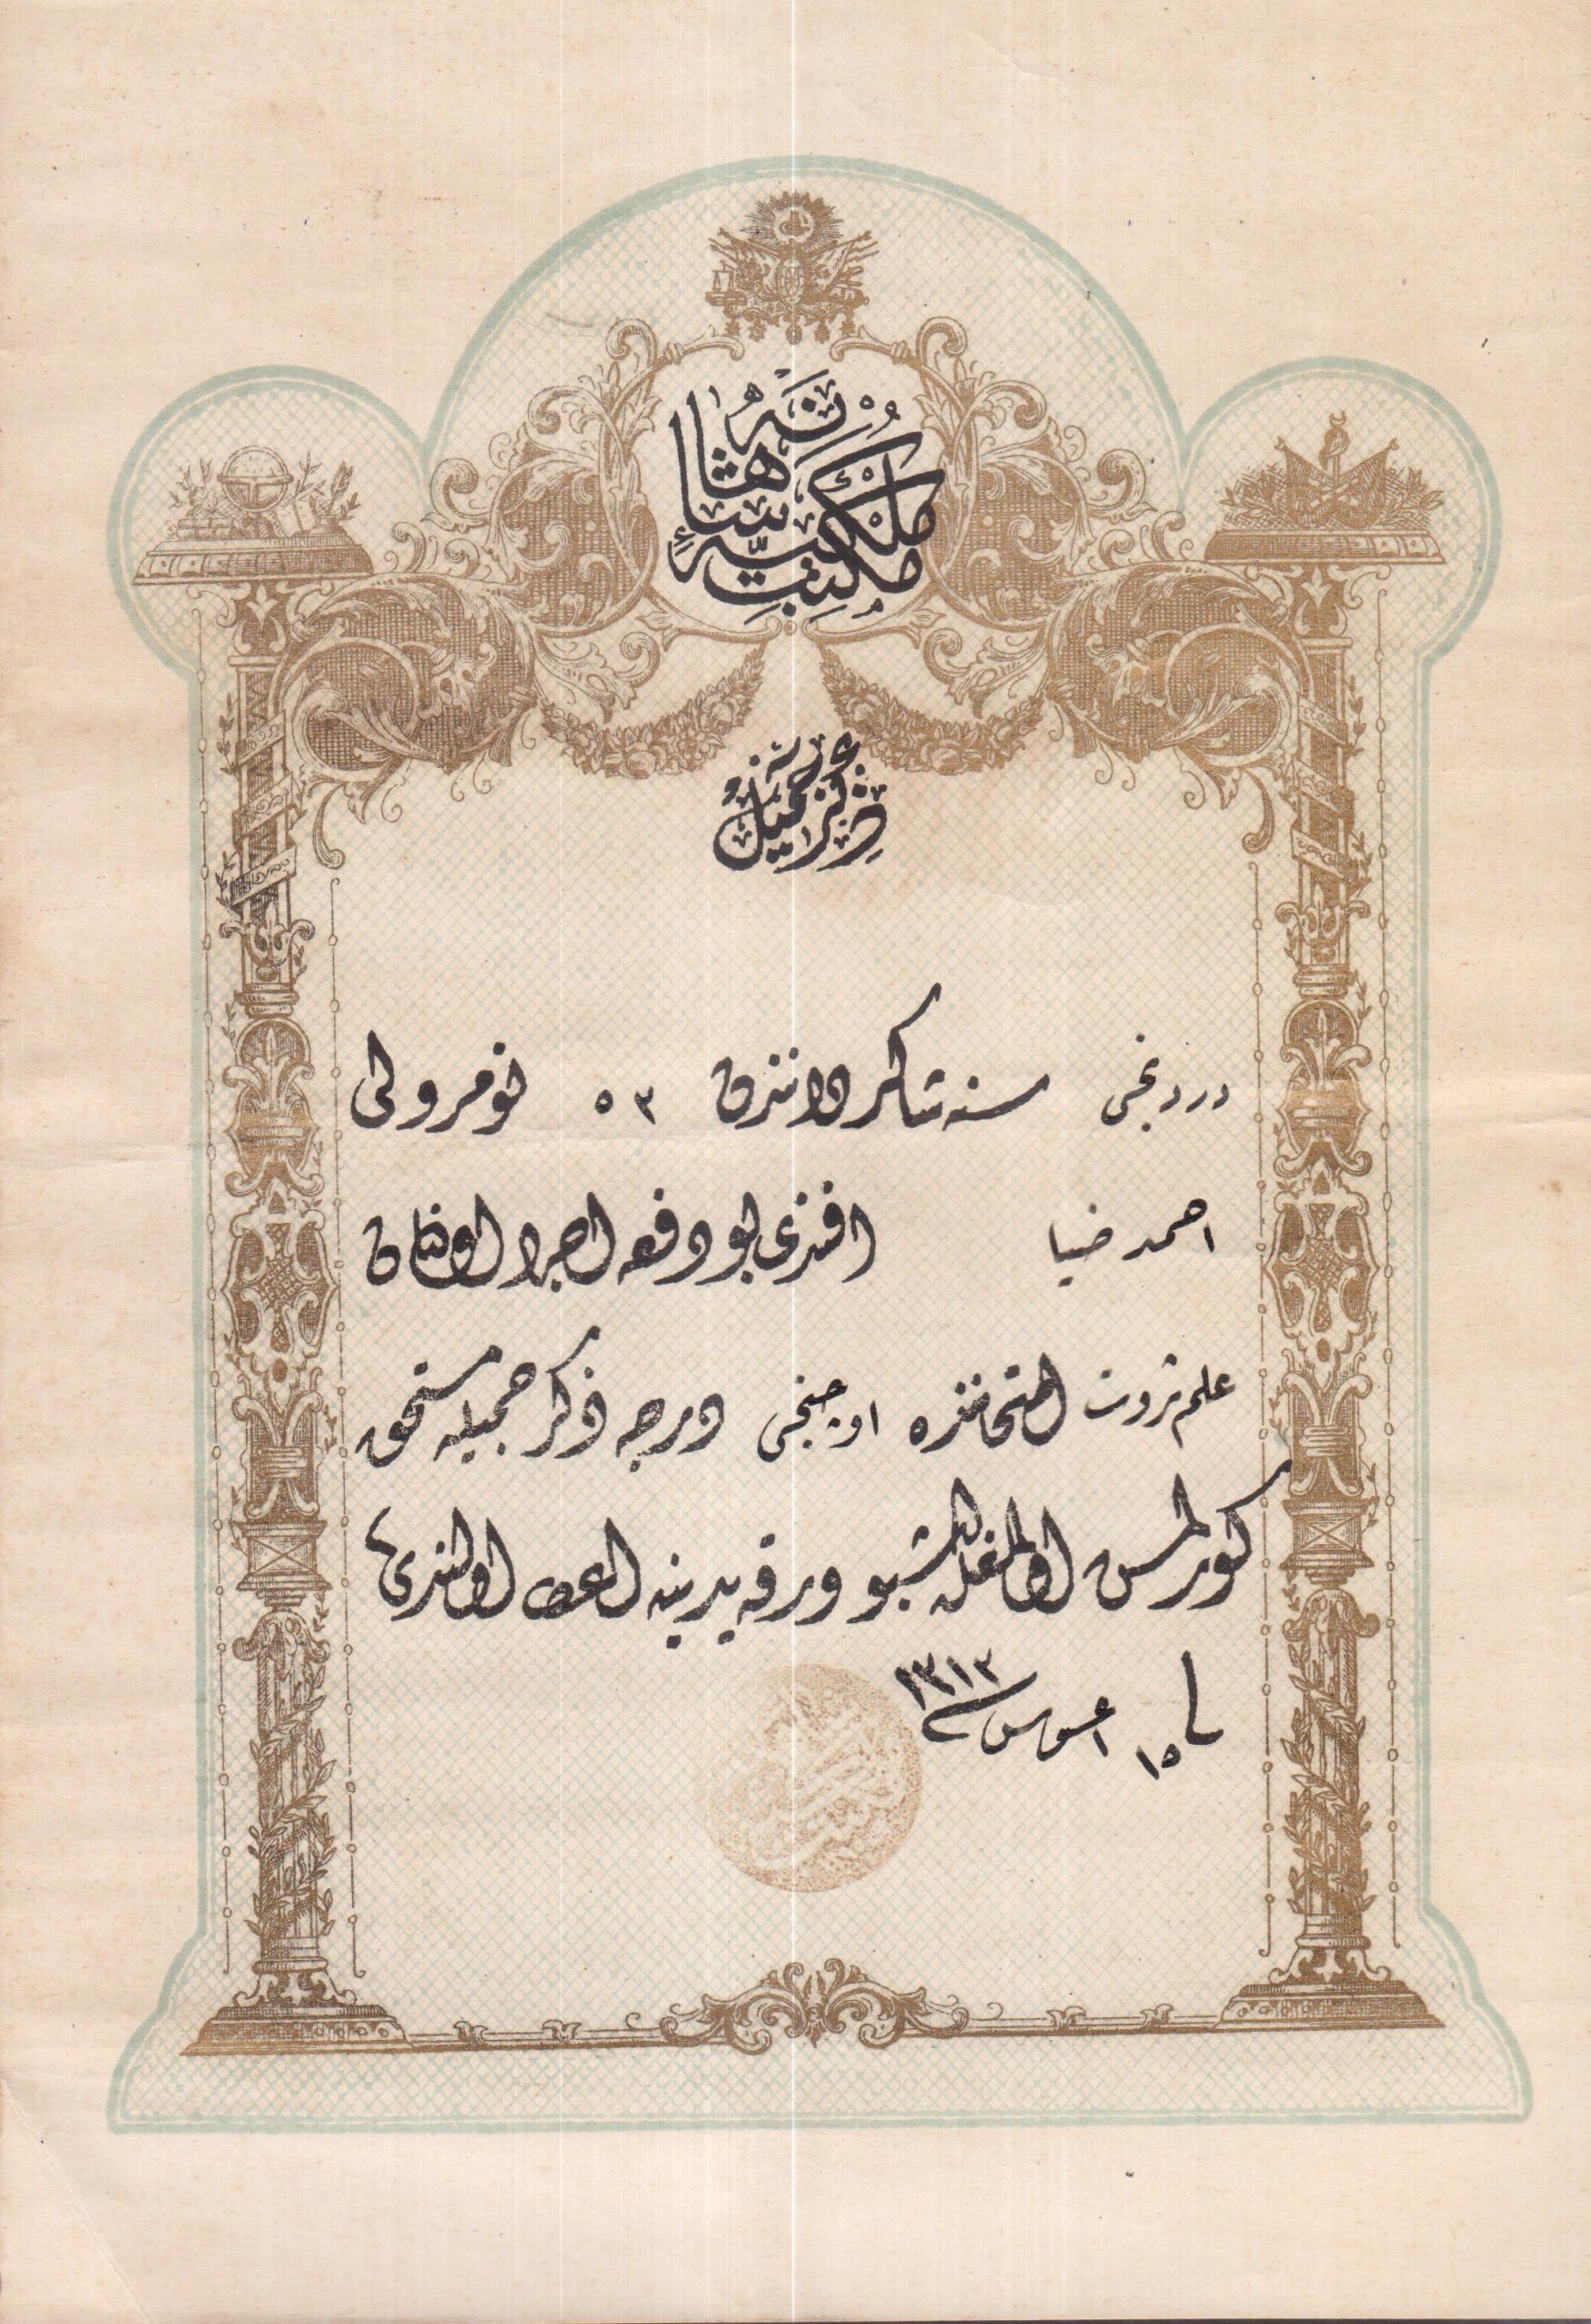 مكتب ملكيه شاهانه
ذكر جميل
دردنجی سنه شاكرداننندن ٥٣ نومرولی
احمد ضيا افندی بو دفعه اجرا اولنان
علم ثروت امتحاننده اوچنجی درجه ذكر جميله مستحق
كورلمش اولمغله اشبو ورقه يدينه اعطا اولندی
١٥ اغستوس سنه ١٣١٣